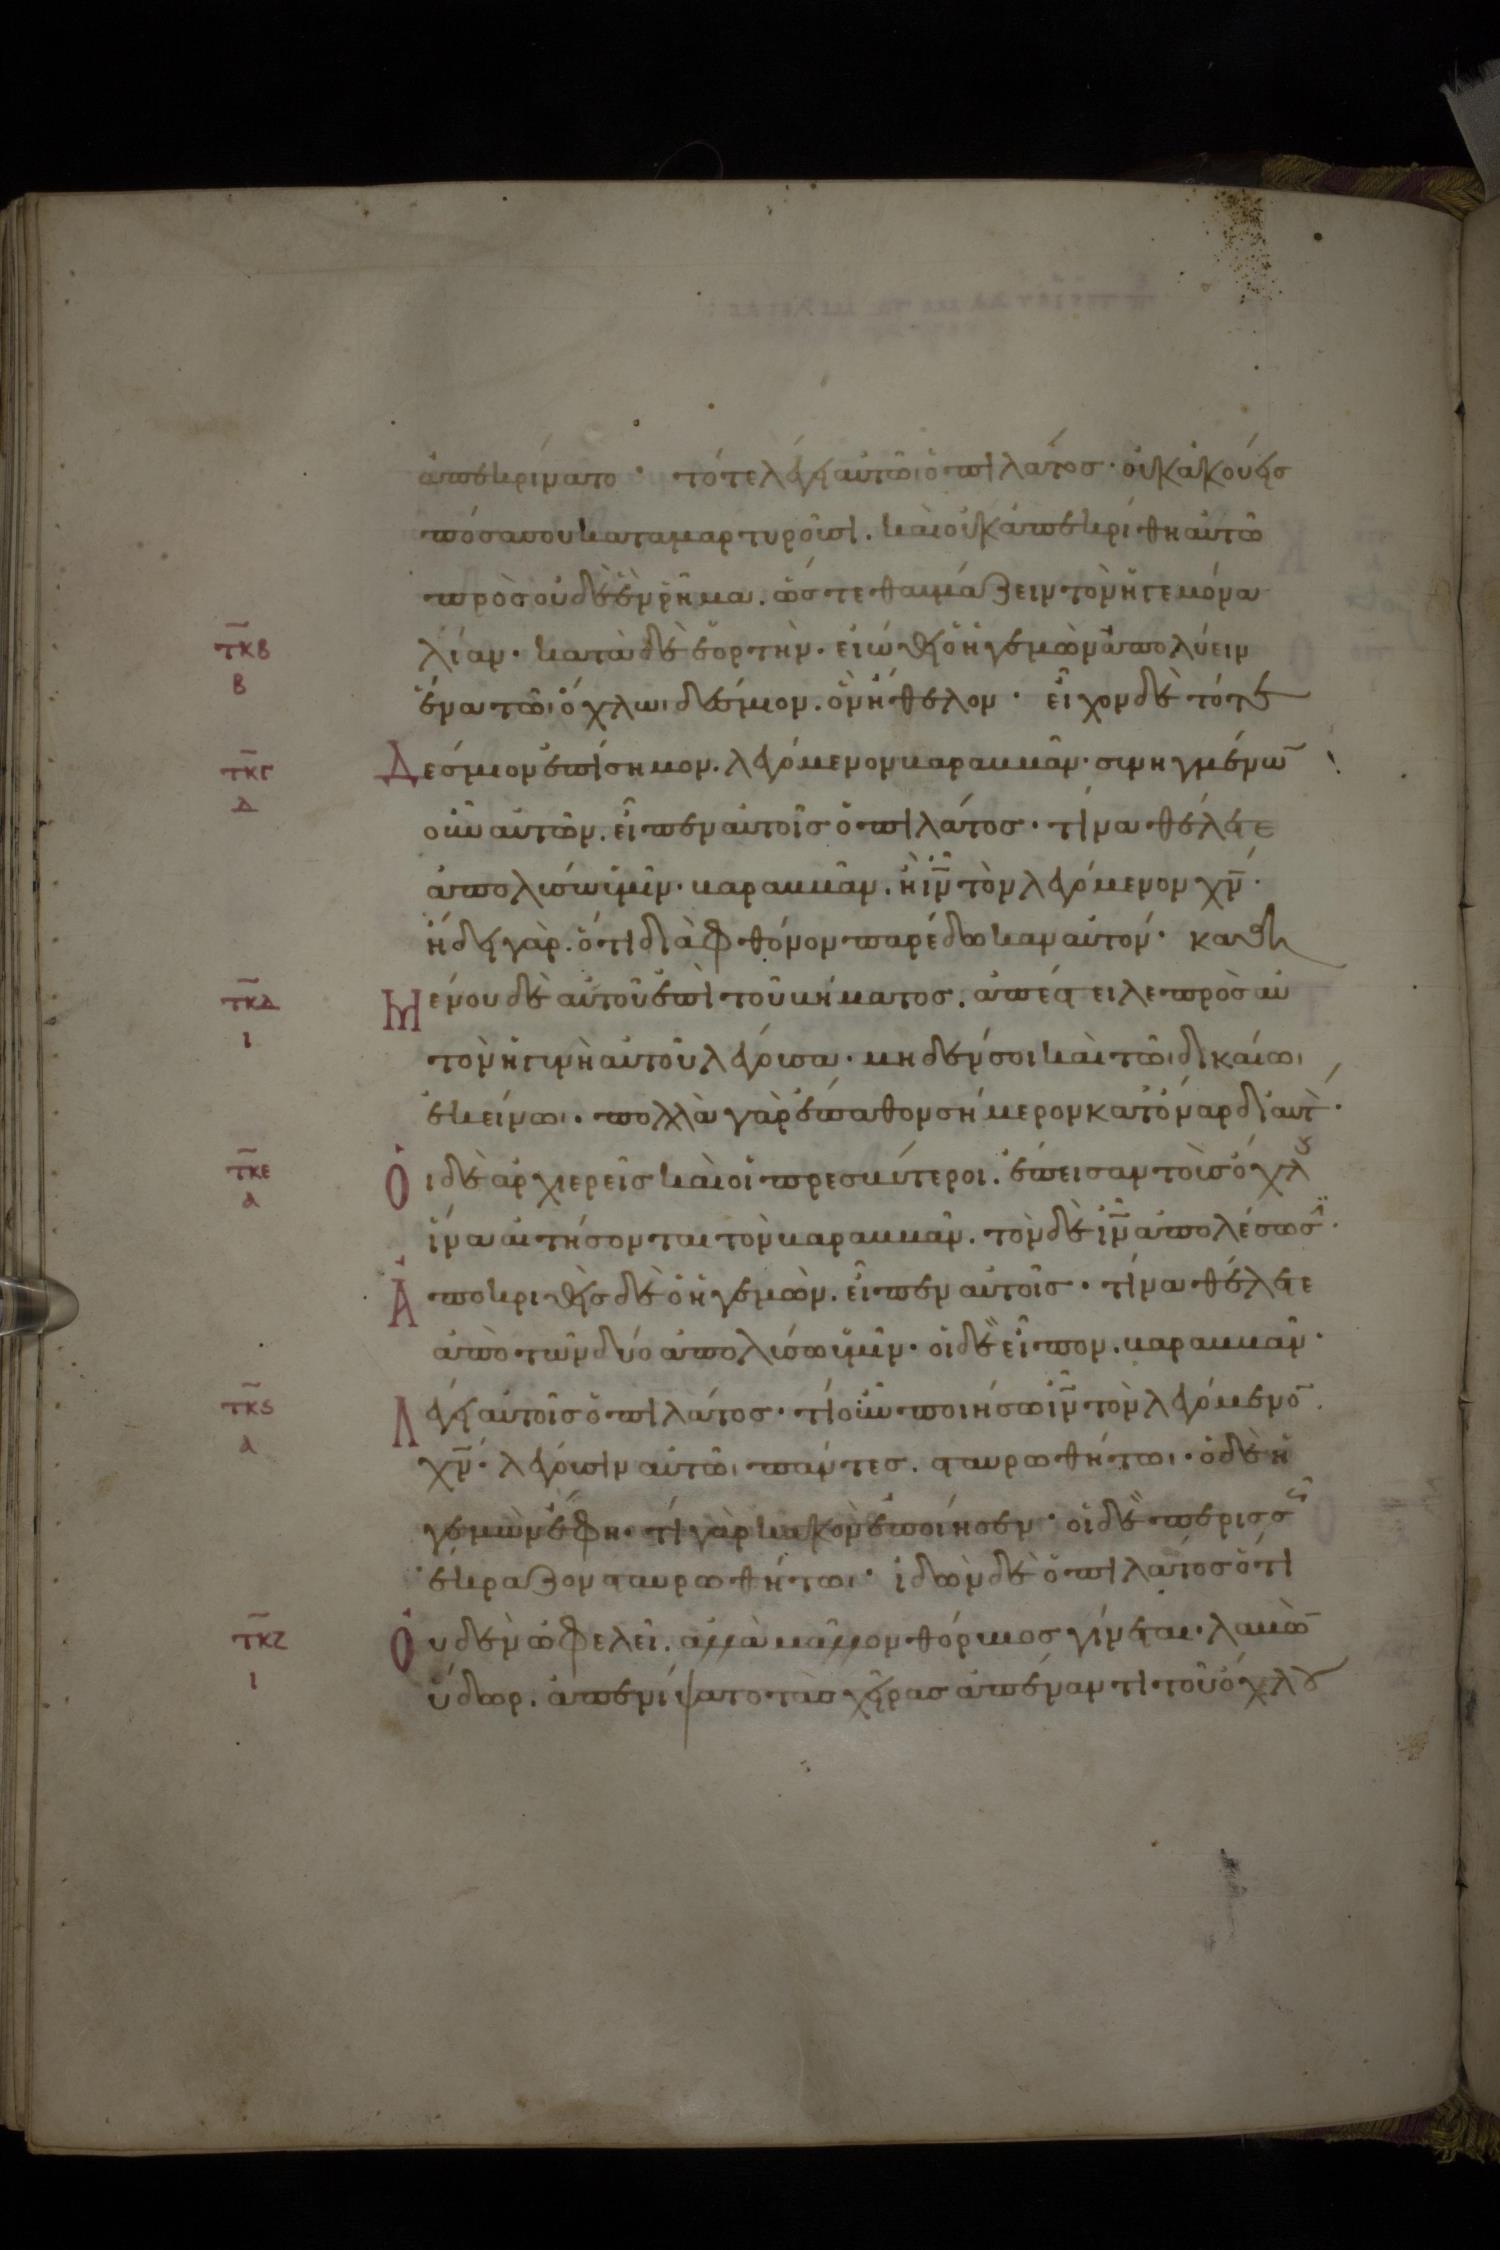 ἀπεκρίνατο · τότε λέγει αὐτῶι ὁ πιλάτος · οὐκ ἀκούεις
πόσα σου καταμαρτυροῦσι . καὶ οὐκ ἀπεκρίθη αὐτῶ
πρὸς οὐδὲ ἓν ῥῆμα . ὥστε θαυμάζειν τὸν ἡγεμόνα
τκβ β λίαν · κατὰ δὲ ἑορτὴν · εἰώθει ὁ ἡγεμὼν ἀπολύειν
ἕνα τῶι ὄχλωι δέσμιον . ὃν ἤθελον · εἶχον δὲ τότε
τκγ δ Δεσμιον ἐπίσημον . λεγόμενον βαραββᾶν · συνηγμένω̅
οὖν αὐτῶν . εἶπεν αὐτοῖς ὁ πιλάτος · τίνα θέλετε
ἀπολύσω ὑμῖν · βαραββᾶν . ἢ ι̅ν̅ τὸν λεγόμενον χ̅ν̅ ·
ἤδει γὰρ . ὅτι διὰ φθόνον παρέδωκαν αὐτόν · καθη
τκδ ι Μενου δὲ αὐτοῦ ἐπὶ τοῦ βήματος . ἀπέστειλε πρὸς αὐ
τὸν ἡ γυνὴ αὐτοῦ λέγουσα · μηδὲν σοὶ καὶ τῶι δικαίωι
ἐκείνωι · πολλὰ γὰρ ἔπαθον σήμερον κατ' ὄναρ δι' αὐτ ·
τκε α Ὁι δὲ ἀρχιερεῖς καὶ οἱ πρεσβύτεροι . ἔπεισαν τοὺς ὄχλου
ἵνα αἰτήσονται τὸν βαραββᾶν . τὸν δὲ ι̅ν̅ ἀπολέσωσι ·
Ἀποκριθεὶς δὲ ὁ ἡγεμὼν . εἶπεν αὐτοῖς · τίνα θέλετε
ἀπὸ τῶν δύο ἀπολύσω ὑμῖν · οἱ δὲ εἶπον . βαραββᾶν ·
τκς α Λέγει αὐτοῖς ὁ πιλάτος · τί οὖν ποιήσω ι̅ν̅ τὸν λεγόμενο̅
χ̅ν̅ · λέγουσιν αὐτῶι πάντες . σταυρωθήτωι · ὁ δὲ ἡ
γεμὼν ἔφη · τί γὰρ κακὸν ἐποίησεν · οἱ δὲ περισσῶς
ἔκραζον σταυρωθήτωι · ἰδὼν δὲ ὁ πιλάτος ὅτι
τκζ ι Ὀυδὲν ὠφελεῖ . ἀλλὰ μᾶλλον θόρυβος γίνεται · λαβὼ̅
ὕδωρ . ἀπενίψατο τὰς χεῖρας ἀπέναντι τοῦ ὄχλου